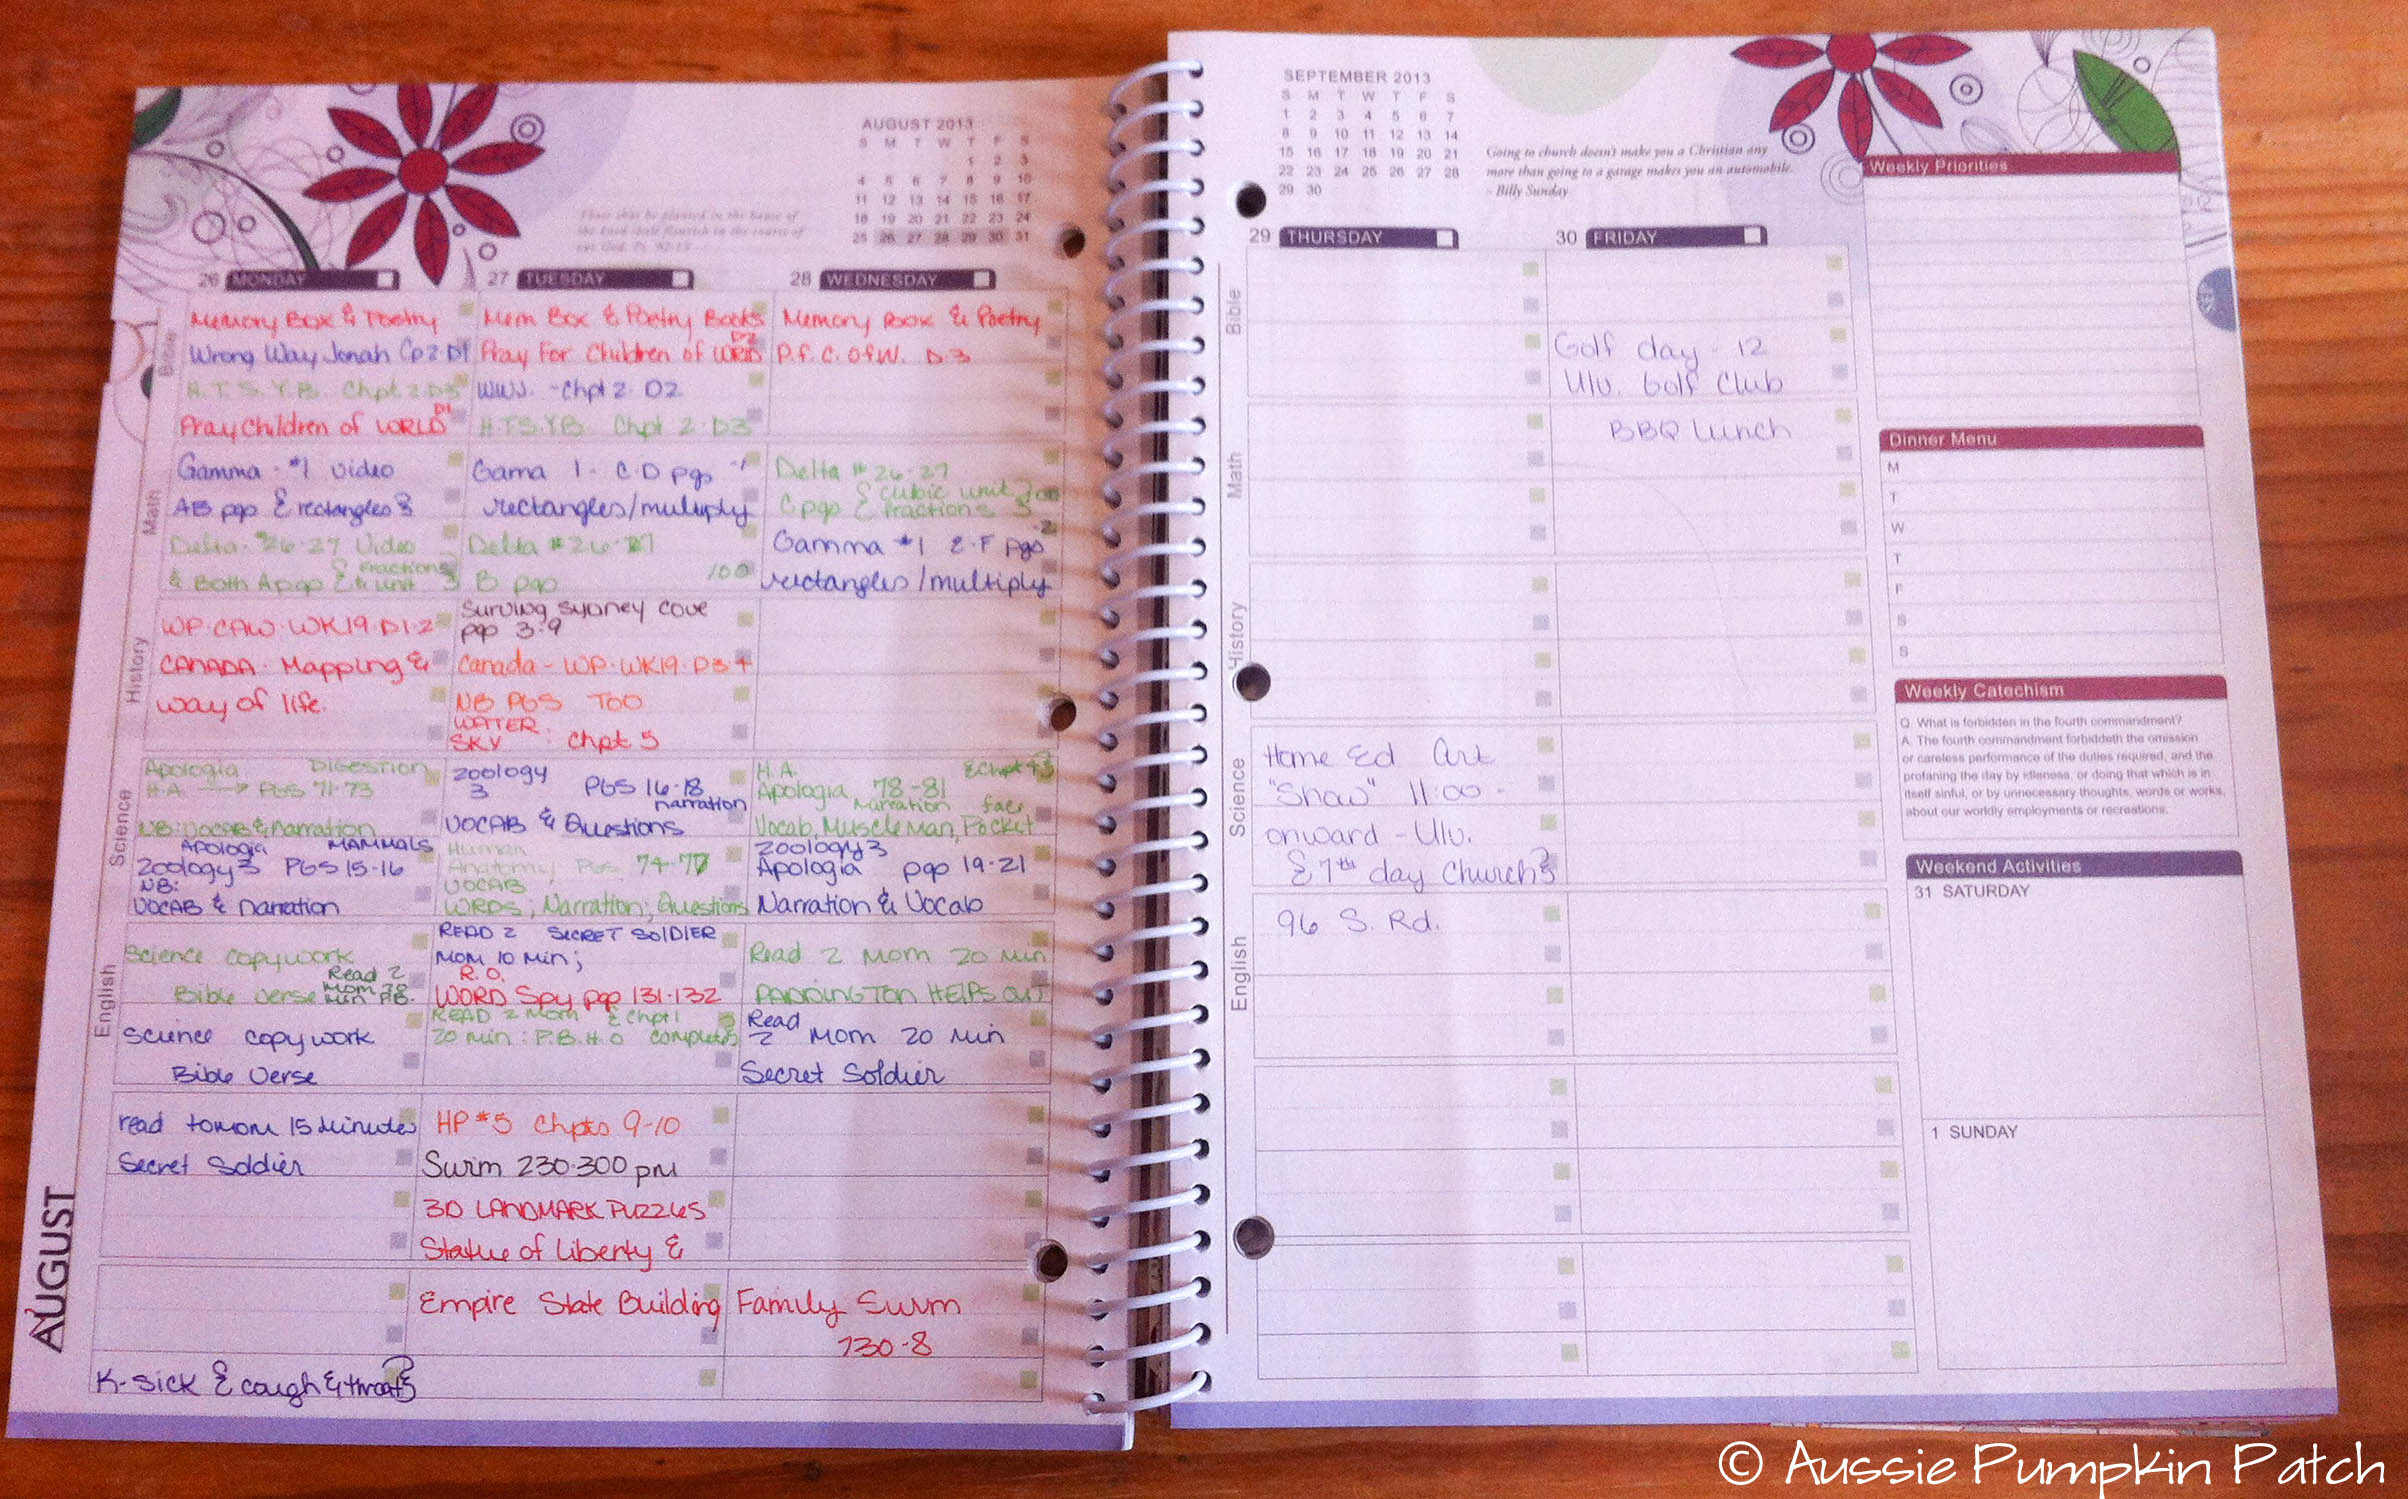 AUGUST 2013
S M T W T F S
1 2 3
4 5 6 7 8 9 10
11 12 13 14 15 16 17
18 19 20 21 22 23 24
25 26 27 28 29 30 31
26 MONDAY
27 TUESDAY
28 WEDNESDAY
Bible
Memory Box & Poetry
Wrong Way Jonah Cp 2 D1
H.T.S.Y.B. Chpt 2 D3
Pray Children of WORLD D1
Mem Box & Poetry Books
Pray For Children of WRLD D2
WWJ. - Chpt 2. D2
H.T.S.Y.B. Chpt 2. D3
Memory Box & Poetry
P.f.C. of W. D.3
Math
Gamma - #1 video
AB pgp & rectangles 3
Delta - #26-27 Video
& Both A pgp
Gama 1 - C-D pgs
rectangles/multiply
Delta #26-27
B pgp 100
Delta #26-27
C pgp & cubic unit
fractions
Gamma #1 E-F pgs
rectangles/multiply
History
WP. CAW. WK19. D1-2
CANADA - Mapping &
way of life.
Surving Sydney Cove
pgp 3-9
Canada - WP. WK19. D3-4
NB PGS TOO
WATER
SKY : Chpt 5
Science
Apologia DIGESTION
H.A. → PGS 71-73
NB: VOCAB & Narration
Apologia MAMMALS
Zoology 3 PGS 15-16
NB:
VOCAB & Narration
Zoology
3 PGS 16-18
narration
VOCAB & Questions
Human
Anatomy PGS 74-77
VOCAB
WRDS, Narration; Questions
H.A.
Apologia 78-81
Narration
Vocab, Muscle Man, Pocket
Zoology 3
Apologia pgp 19-21
Narration & Vocab
English
Science copywork
Bible Verse
Read 2
Mom 20
Min P.B.
Science copywork
Bible Verse
READ 2 SECRET SOLDIER
Mom 10 Min;
R.O.
WORD Spy pgp 131-132
READ 2 Mom & Chpt 1
20 min : P.B.H.O complete
Read 2 Mom 20 Min
PADDINGTON HELPS OUT
Read
2 Mom 20 Min
Secret Soldier
read to mom 15 minutes
Secret Soldier
HP #5 Chpts 9-10
Swim 230-300 pm
3D LANDMARK PUZZLES
Statue of Liberty &
Empire State Building
Family Swim
730-8
K-sick & cough & throat
AUGUST
SEPTEMBER 2013
S M T W T F S
1 2 3 4 5 6 7
8 9 10 11 12 13 14
15 16 17 18 19 20 21
22 23 24 25 26 27 28
29 30
Going to church doesn't make you a Christian any
more than going to a garage makes you an automobile.
- Billy Sunday
29 THURSDAY
30 FRIDAY
Bible
Golf day - 12
Ulv. Golf Club
BBQ Lunch
Math
History
Science
Home Ed Art
"Show" 11:00 -
onward - Ulv.
& 7th day Church
English
96 S. Rd.
Weekly Priorities
Dinner Menu
M
T
W
T
F
S
S
Weekly Catechism
Q. What is forbidden in the fourth commandment?
A. The fourth commandment forbiddeth the omission
or careless performance of the duties required, and the
profaning the day by idleness, or doing that which is in
itself sinful, or by unnecessary thoughts, words or works,
about our worldly employments or recreations.
Weekend Activities
31 SATURDAY
1 SUNDAY
© Aussie Pumpkin Patch